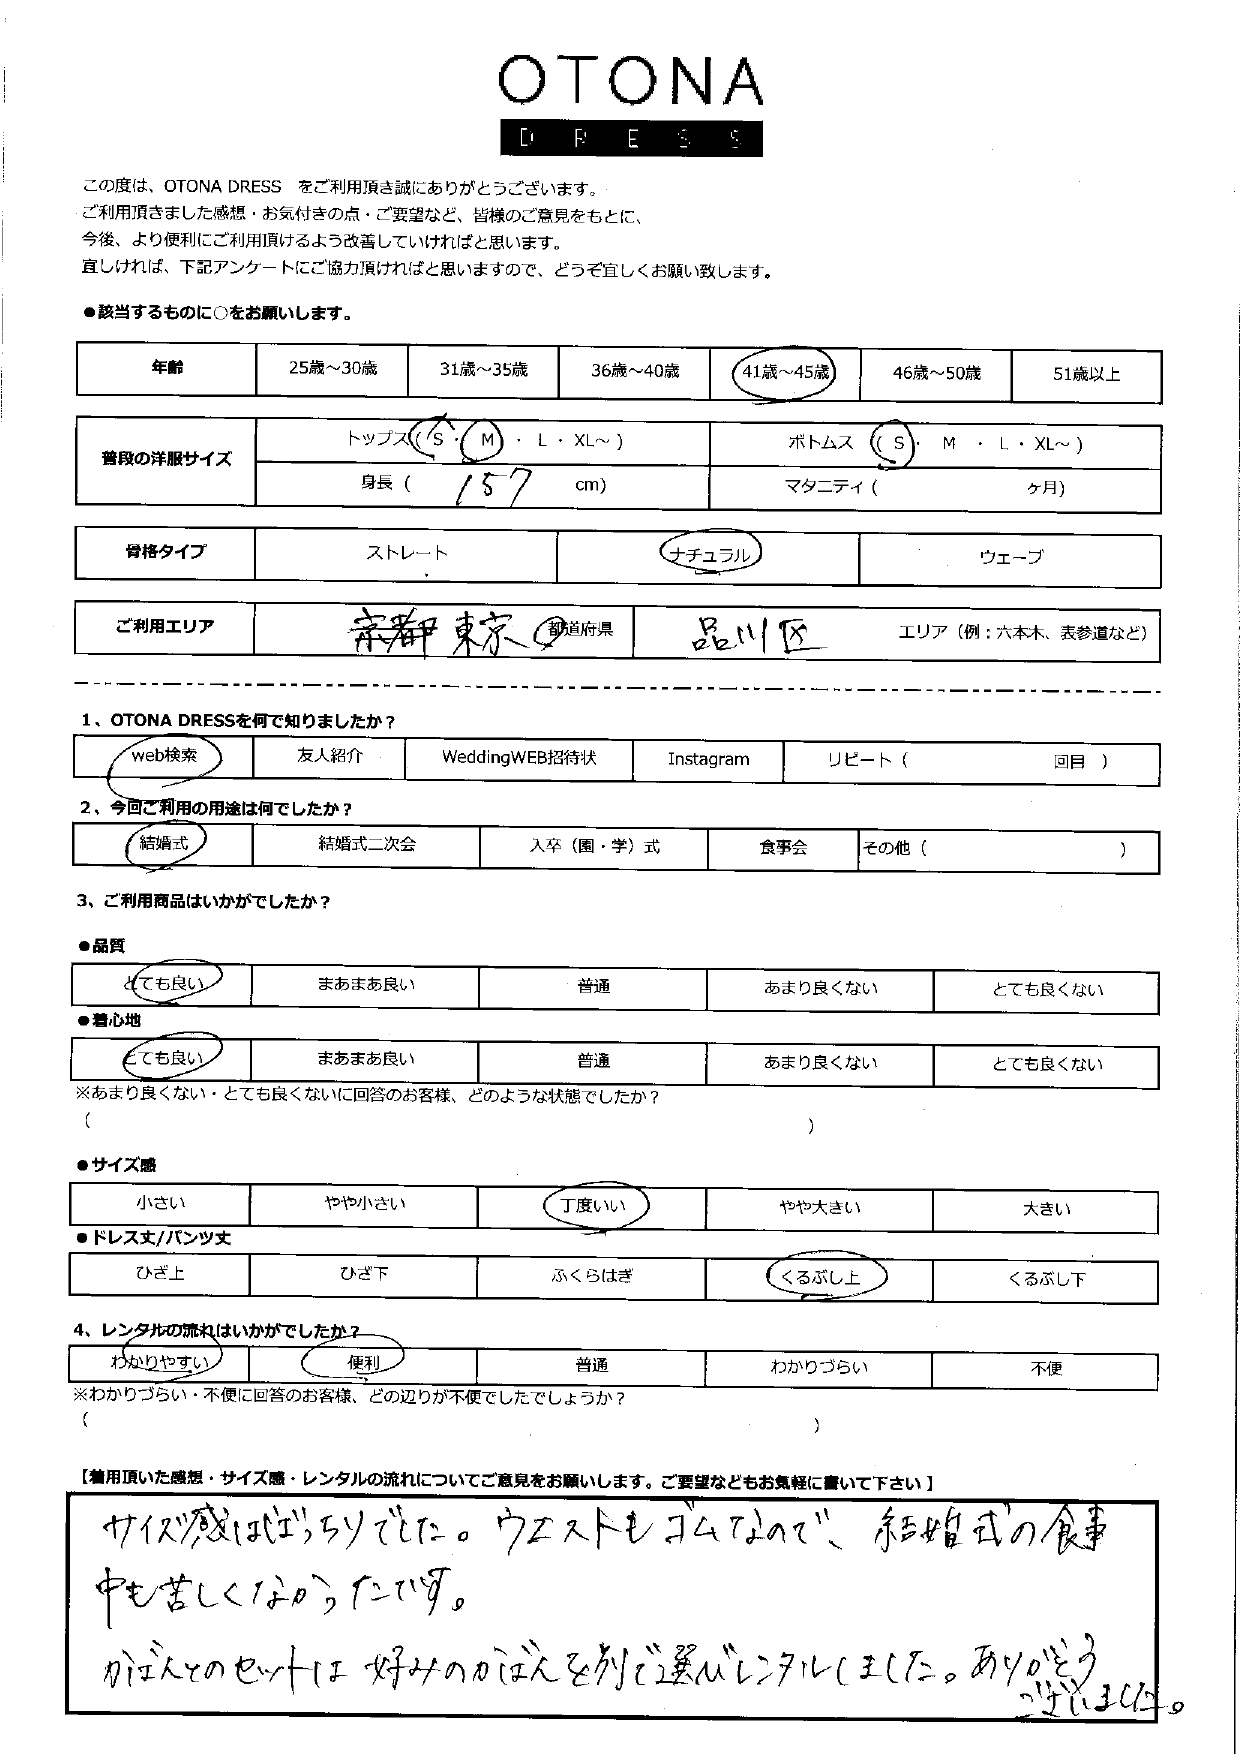 OTONA
DRESS
この度は、OTONA DRESS をご利用頂き誠にありがとうございます。
ご利用頂きました感想・お気付きの点・ご要望など、皆様のご意見をもとに、
今後、より便利にご利用頂けるよう改善していければと思います。
宜しければ、下記アンケートにご協力頂ければと思いますので、どうぞ宜しくお願い致します。
●該当するものに○をお願いします。
年齢 25歳～30歳 31歳～35歳 36歳～40歳 41歳～45歳 46歳～50歳 51歳以上
普段の洋服サイズ トップス( S ・ M ・ L ・ XL～ ) ボトムス ( S ・ M ・ L ・ XL～ )
身長 ( 157 cm) マタニティ ( ケ月)
骨格タイプ ストレート ナチュラル ウェーブ
ご利用エリア 京都 東京 都道府県 品川区 エリア（例：六本木、表参道など）
1、OTONA DRESSを何で知りましたか？
web検索 友人紹介 WeddingWEB招待状 Instagram リピート（ 回目 ）
2、今回ご利用の用途は何でしたか？
結婚式 結婚式二次会 入卒（園・学）式 食事会 その他（ ）
3、ご利用商品はいかがでしたか？
●品質
とても良い まあまあ良い 普通 あまり良くない とても良くない
●着心地
とても良い まあまあ良い 普通 あまり良くない とても良くない
※あまり良くない・とても良くないに回答のお客様、どのような状態でしたか？
（ ）
●サイズ感
小さい やや小さい 丁度いい やや大きい 大きい
●ドレス丈/パンツ丈
ひざ上 ひざ下 ふくらはぎ くるぶし上 くるぶし下
4、レンタルの流れはいかがでしたか？
わかりやすい 便利 普通 わかりづらい 不便
※わかりづらい・不便に回答のお客様、どの辺りが不便でしたでしょうか？
（ ）
【着用頂いた感想・サイズ感・レンタルの流れについてご意見をお願いします。ご要望などもお気軽に書いて下さい】
サイズ感はばっちりでした。ウエストもゴムなので、結婚式の食事
中も苦しくなかったです。
かばんとのセットは好みのかばんを別で選びレンタルしました。ありがとう
ございました。